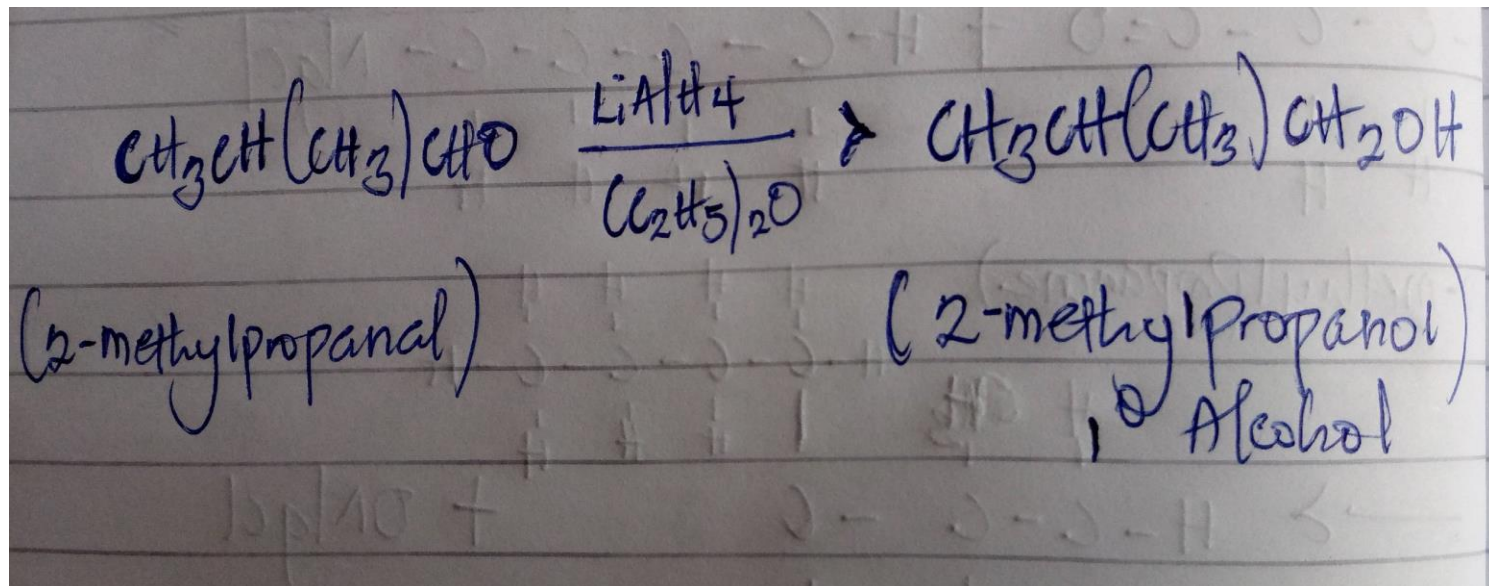 CH3CH(CH3)CHO LiAlH4 > CH3CH(CH3)CH2OH
(C2H5)2O
(2-methylpropanal) (2-methylpropanol)
1° Alcohol